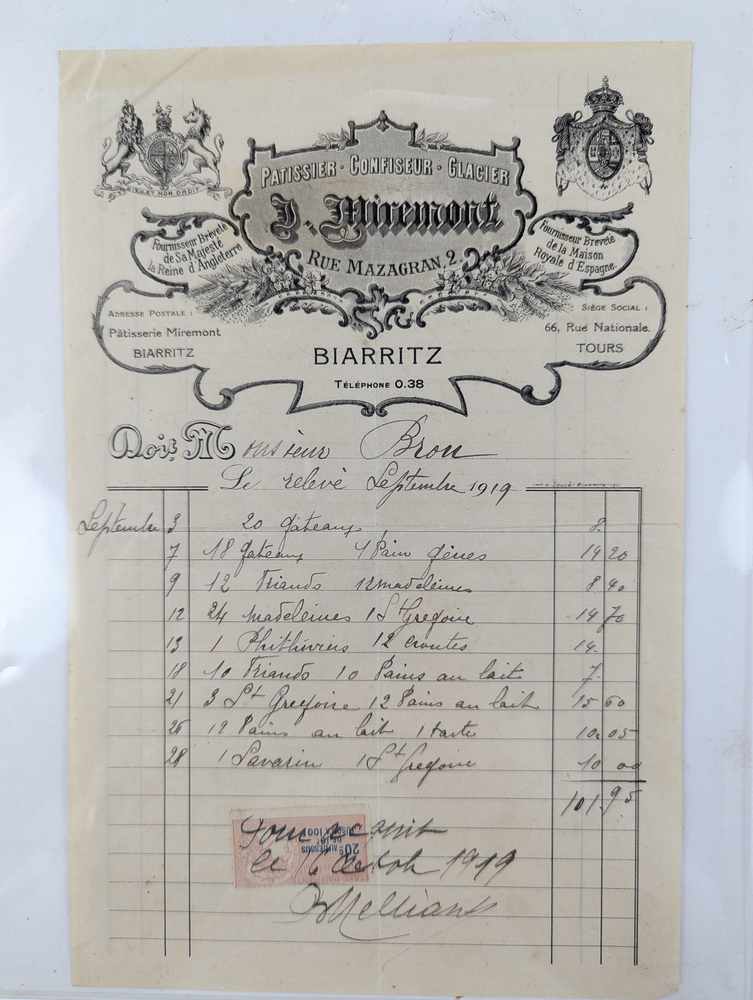 PATISSIER - CONFISEUR - GLACIER
J. Miremont
RUE MAZAGRAN, 2
DIEU ET MON DROIT
Fournisseur Breveté
de Sa Majesté
la Reine d'Angleterre
Fournisseur Breveté
de la Maison
Royale d'Espagne.
ADRESSE POSTALE :
Pâtisserie Miremont
BIARRITZ
SIÈGE SOCIAL :
66, Rue Nationale.
TOURS
BIARRITZ
TÉLÉPHONE 0.38
Doit Monsieur Brou
Le relevé Septembre 1919
Septembre 3 20 gâteaux 8.
7 18 gateaux 1 Pain gênes 14 20
9 12 friands 12 madeleines 8 40
12 24 madeleines 1 St Gregoire 14 70
13 1 Phithiviers 12 croutes 14.
18 10 friands 10 Pains au lait 7.
21 3 St Gregoire 12 Pains au lait 15 60
26 12 Pains au lait 1 tarte 10 05
28 1 Savarin 1 St Gregoire 10 00
101.95
Pour acquit
le 1919